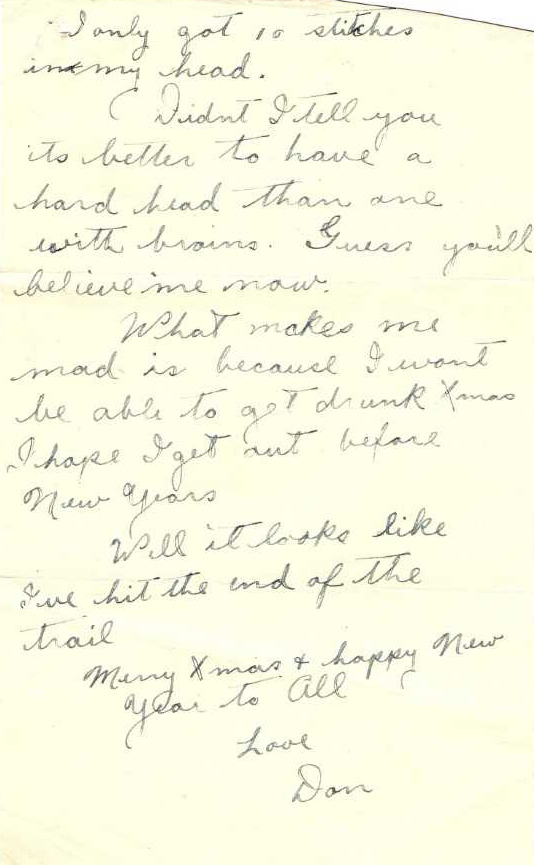 I only got 10 stitches
in my head.
Didnt I tell you
its better to have a
hard head than one
with brains. Guess you'll
believe me now.
What makes me
mad is because I wont
be able to get drunk Xmas
I hope I get out before
New Years
Well it looks like
I've hit the end of the
trail
Merry Xmas & happy New
Year to All
Love
Don